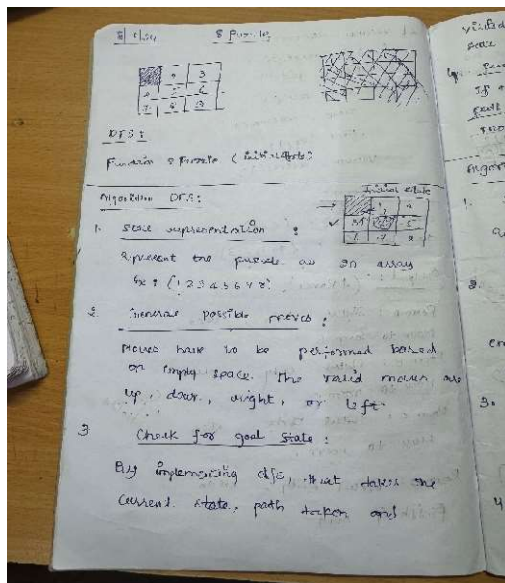 8 puzzle
2 3
5 6
DFS :
Function 8 Puzzle (initial state)
Algorithm DFS :
Initial state
1. State representation :
Represent the puzzle as an array
Ex : [1 2 3 4 5 6 7 8]
2. Generate possible moves :
Moves have to be performed based
on empty space. The valid moves are
up, down, right, or left.
3 Check for goal state :
By implementing dfs, that takes the
current state, path taken and
visited
state
4.
If
Algor
1.
2.
3.
4